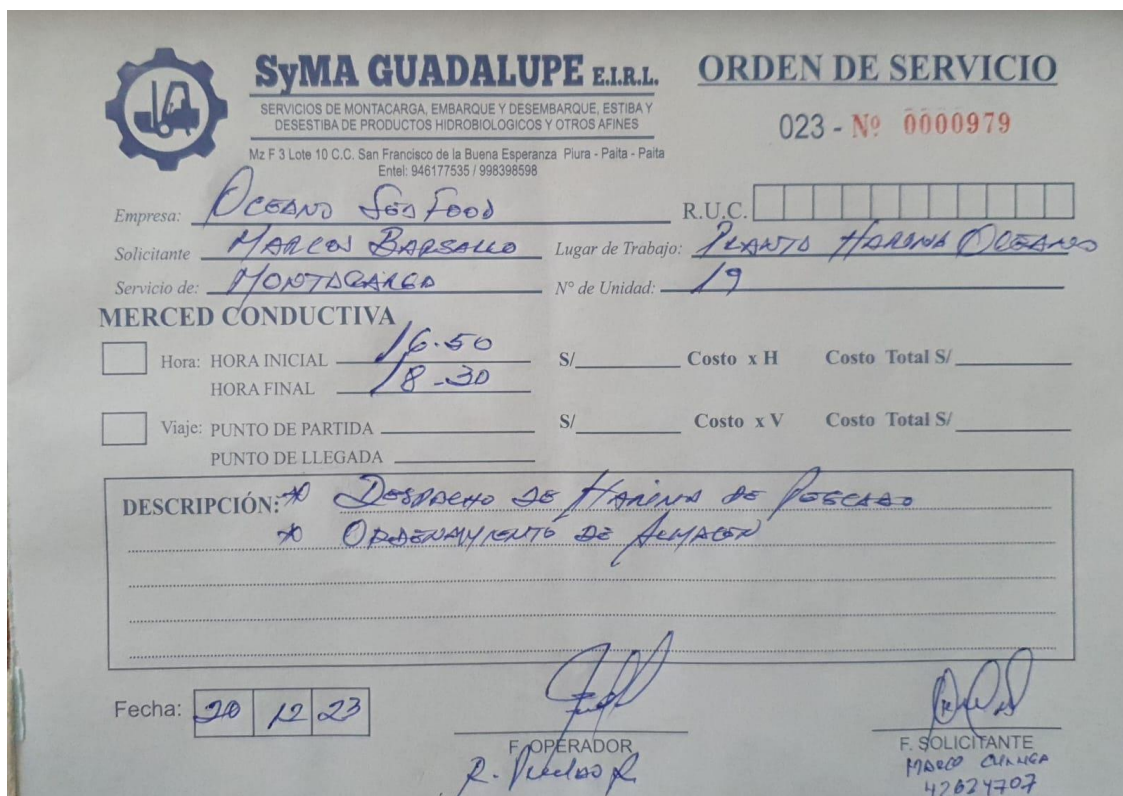 SyMA GUADALUPE E.I.R.L.
ORDEN DE SERVICIO
SERVICIOS DE MONTACARGA, EMBARQUE Y DESEMBARQUE, ESTIBA Y
DESESTIBA DE PRODUCTOS HIDROBIOLOGICOS Y OTROS AFINES
023 - Nº 0000979
Mz F 3 Lote 10 C.C. San Francisco de la Buena Esperanza Piura - Paita - Paita
Entel: 946177535 / 998398598
Empresa: OCEANO SEA FOOD R.U.C.
Solicitante MARCOS BARSALLO Lugar de Trabajo: PLANTA HARINA OCEANO
Servicio de: MONTACARGA N° de Unidad: 19
MERCED CONDUCTIVA
Hora: HORA INICIAL 16.50 S/ Costo x H Costo Total S/
HORA FINAL 18-30
Viaje: PUNTO DE PARTIDA S/ Costo x V Costo Total S/
PUNTO DE LLEGADA
DESCRIPCIÓN: * DESPACHO DE HARINA DE PESCADO
* ORDENAMIENTO DE ALMACEN
Fecha: 20 12 23
F. OPERADOR F. SOLICITANTE
R. MARCO CHANGA
42624707